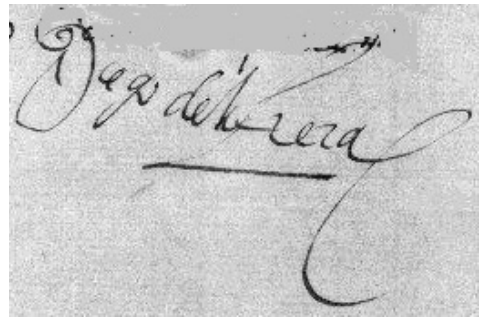 Diego de herrera